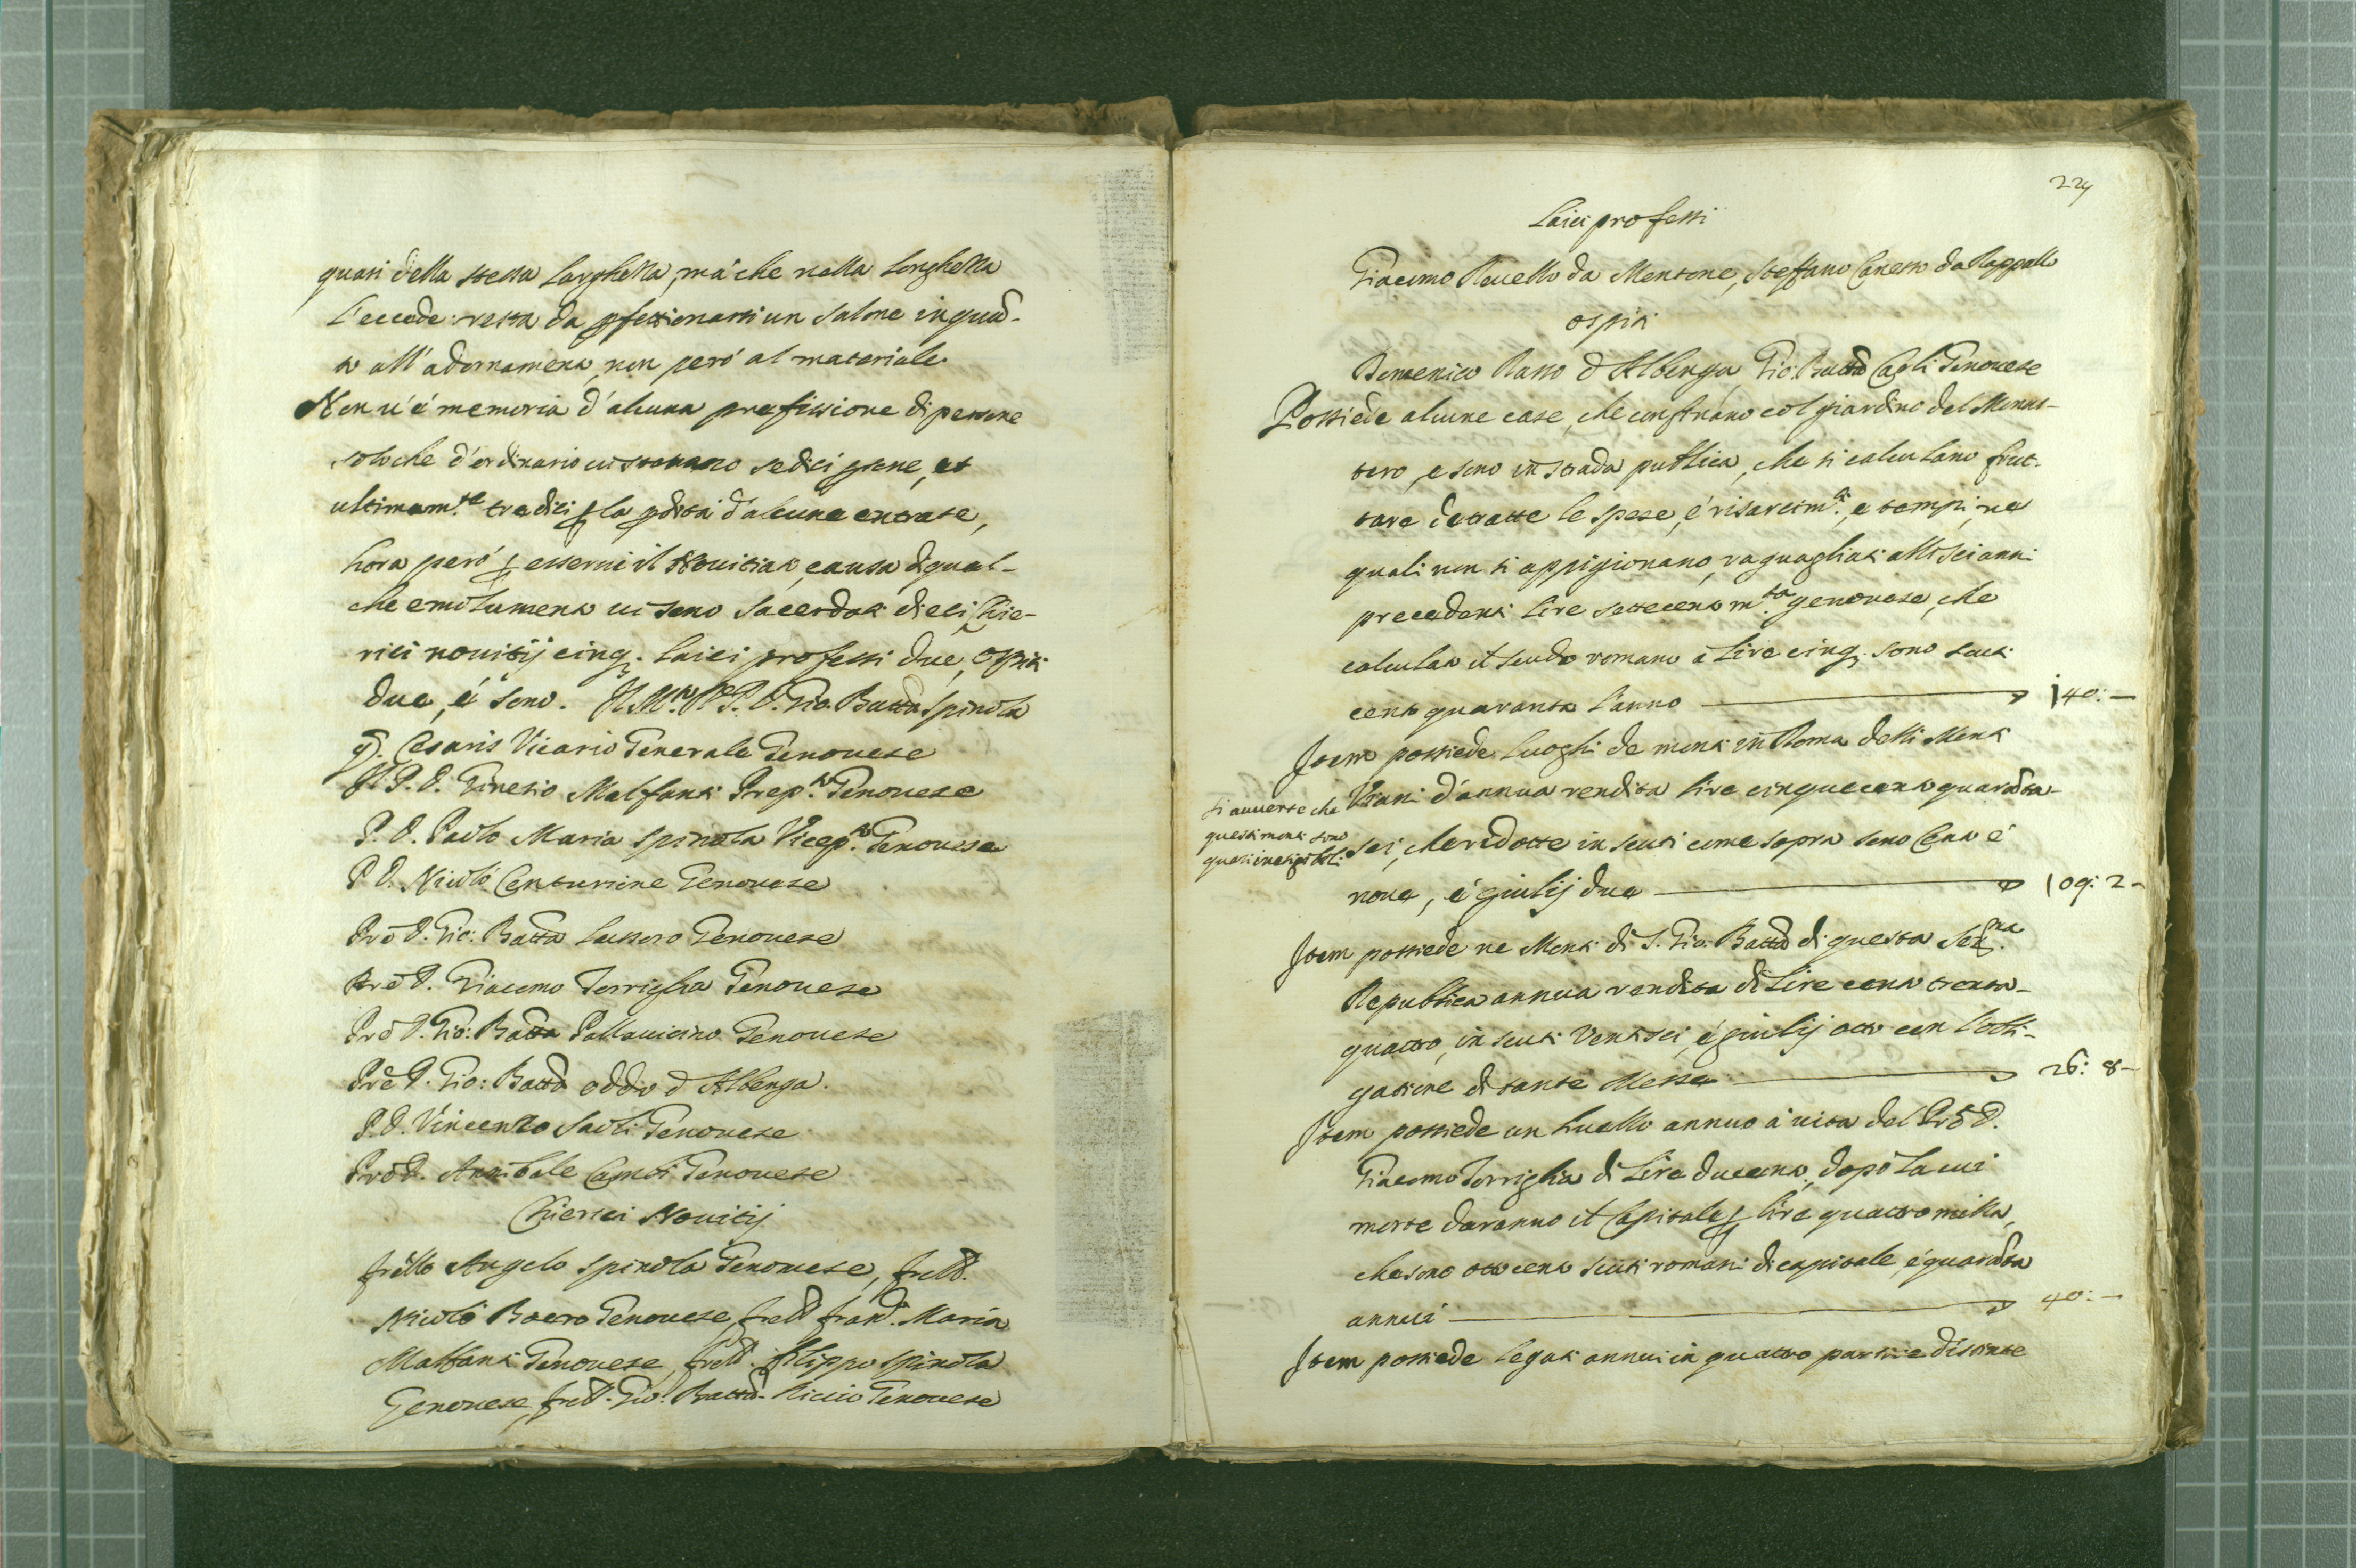 quasi della stessa larghezza, mà che nella longhezza
l'eccede: resta da pfettionarsi un salone in quā-
to all'adornamento, non però al materiale.
Non u'è memoria d'alcuna prefissione di persone
solo che d'ordinario ui stauano sedici psone, et
ultimam.te tredici p la pdita d'alcune entrate,
hora però p esserui il Nouitiato, causa di qual-
che emolumento ui sono sacerdoti dieci Chie-
rici nouitij cinq; laici professi due, ospiti
due, é sono. Il M.to R. P. D. Gio. Batta Spinola
q. Cesaris Vicario Generale Genouese
Il P. D. Ginesio Malfanti Prep.to Genouese
P. D. Paolo Maria Spinola Vicep.to Genouese
P. D. Nicolò Centurione Genouese
Prē D. Gio: Batta Lussoro Genouese
Prē D. Giacomo Torriglia Genouese
Prē D. Gio: Batta Pallauicino Genouese
Prē D. Gio: Batta Oddo d'Albenga.
P. D. Vincenzo Saoli Genouese
Prē D. Annibale Genouese
Chierici Nouitij
frēllo Angelo Spinola Genouese, frell.
Nicolò Boero Genouese, frell. fran. Maria
Malfanti Genouese, frell. filippo Spinola
Genouese, frell. Gio: Batta. Riccio Genouese
224
Laici professi
Giacomo Rauello da Mentone, Steffano Canesso da Rappallo
ospiti
Domenico Rasso d'Albenga, Gio: Batta Genouese
Possiede alcune case, che confinano col giardino del Monas-
tero, e sono in strada publica, che si calculano frut-
tare detratte le spese, é risarcim.ti, e tempi, ne
quali non si appigionano, raguagliati alli sei anni
precedenti lire settecento m.ta genouese, che
calculato il scudo romano à lire cinq; sono scuti
cento quaranta l'anno 140: —
Item possiede luoghi de monti in Roma delli Monti
Viuni d'annua rendita lire cinquecento quarāta-
si auuerte che
questi monti sono
quasi inesigibili
sei, che ridotte in scuti come sopra sono Cento é
noue, é giulij due 109: 2 -
Item possiede ne Monti di S. Gio. Batta di questa Ser.ma
Republica annua rendita di lire cento trenta-
quattro, in scuti Ventisei, é giulij otto con l'obli-
gatione di tante Messe 26: 8 -
Item possiede un liuello annuo à uita del Prē D.
Giacomo Torriglia di lire ducento, dopò la cui
morte daranno il Capitale p lire quattromilla,
che sono ottocento scuti romani di capitale, é quarāta
annui 40: —
Item possiede legati annui in quattro partite distinte